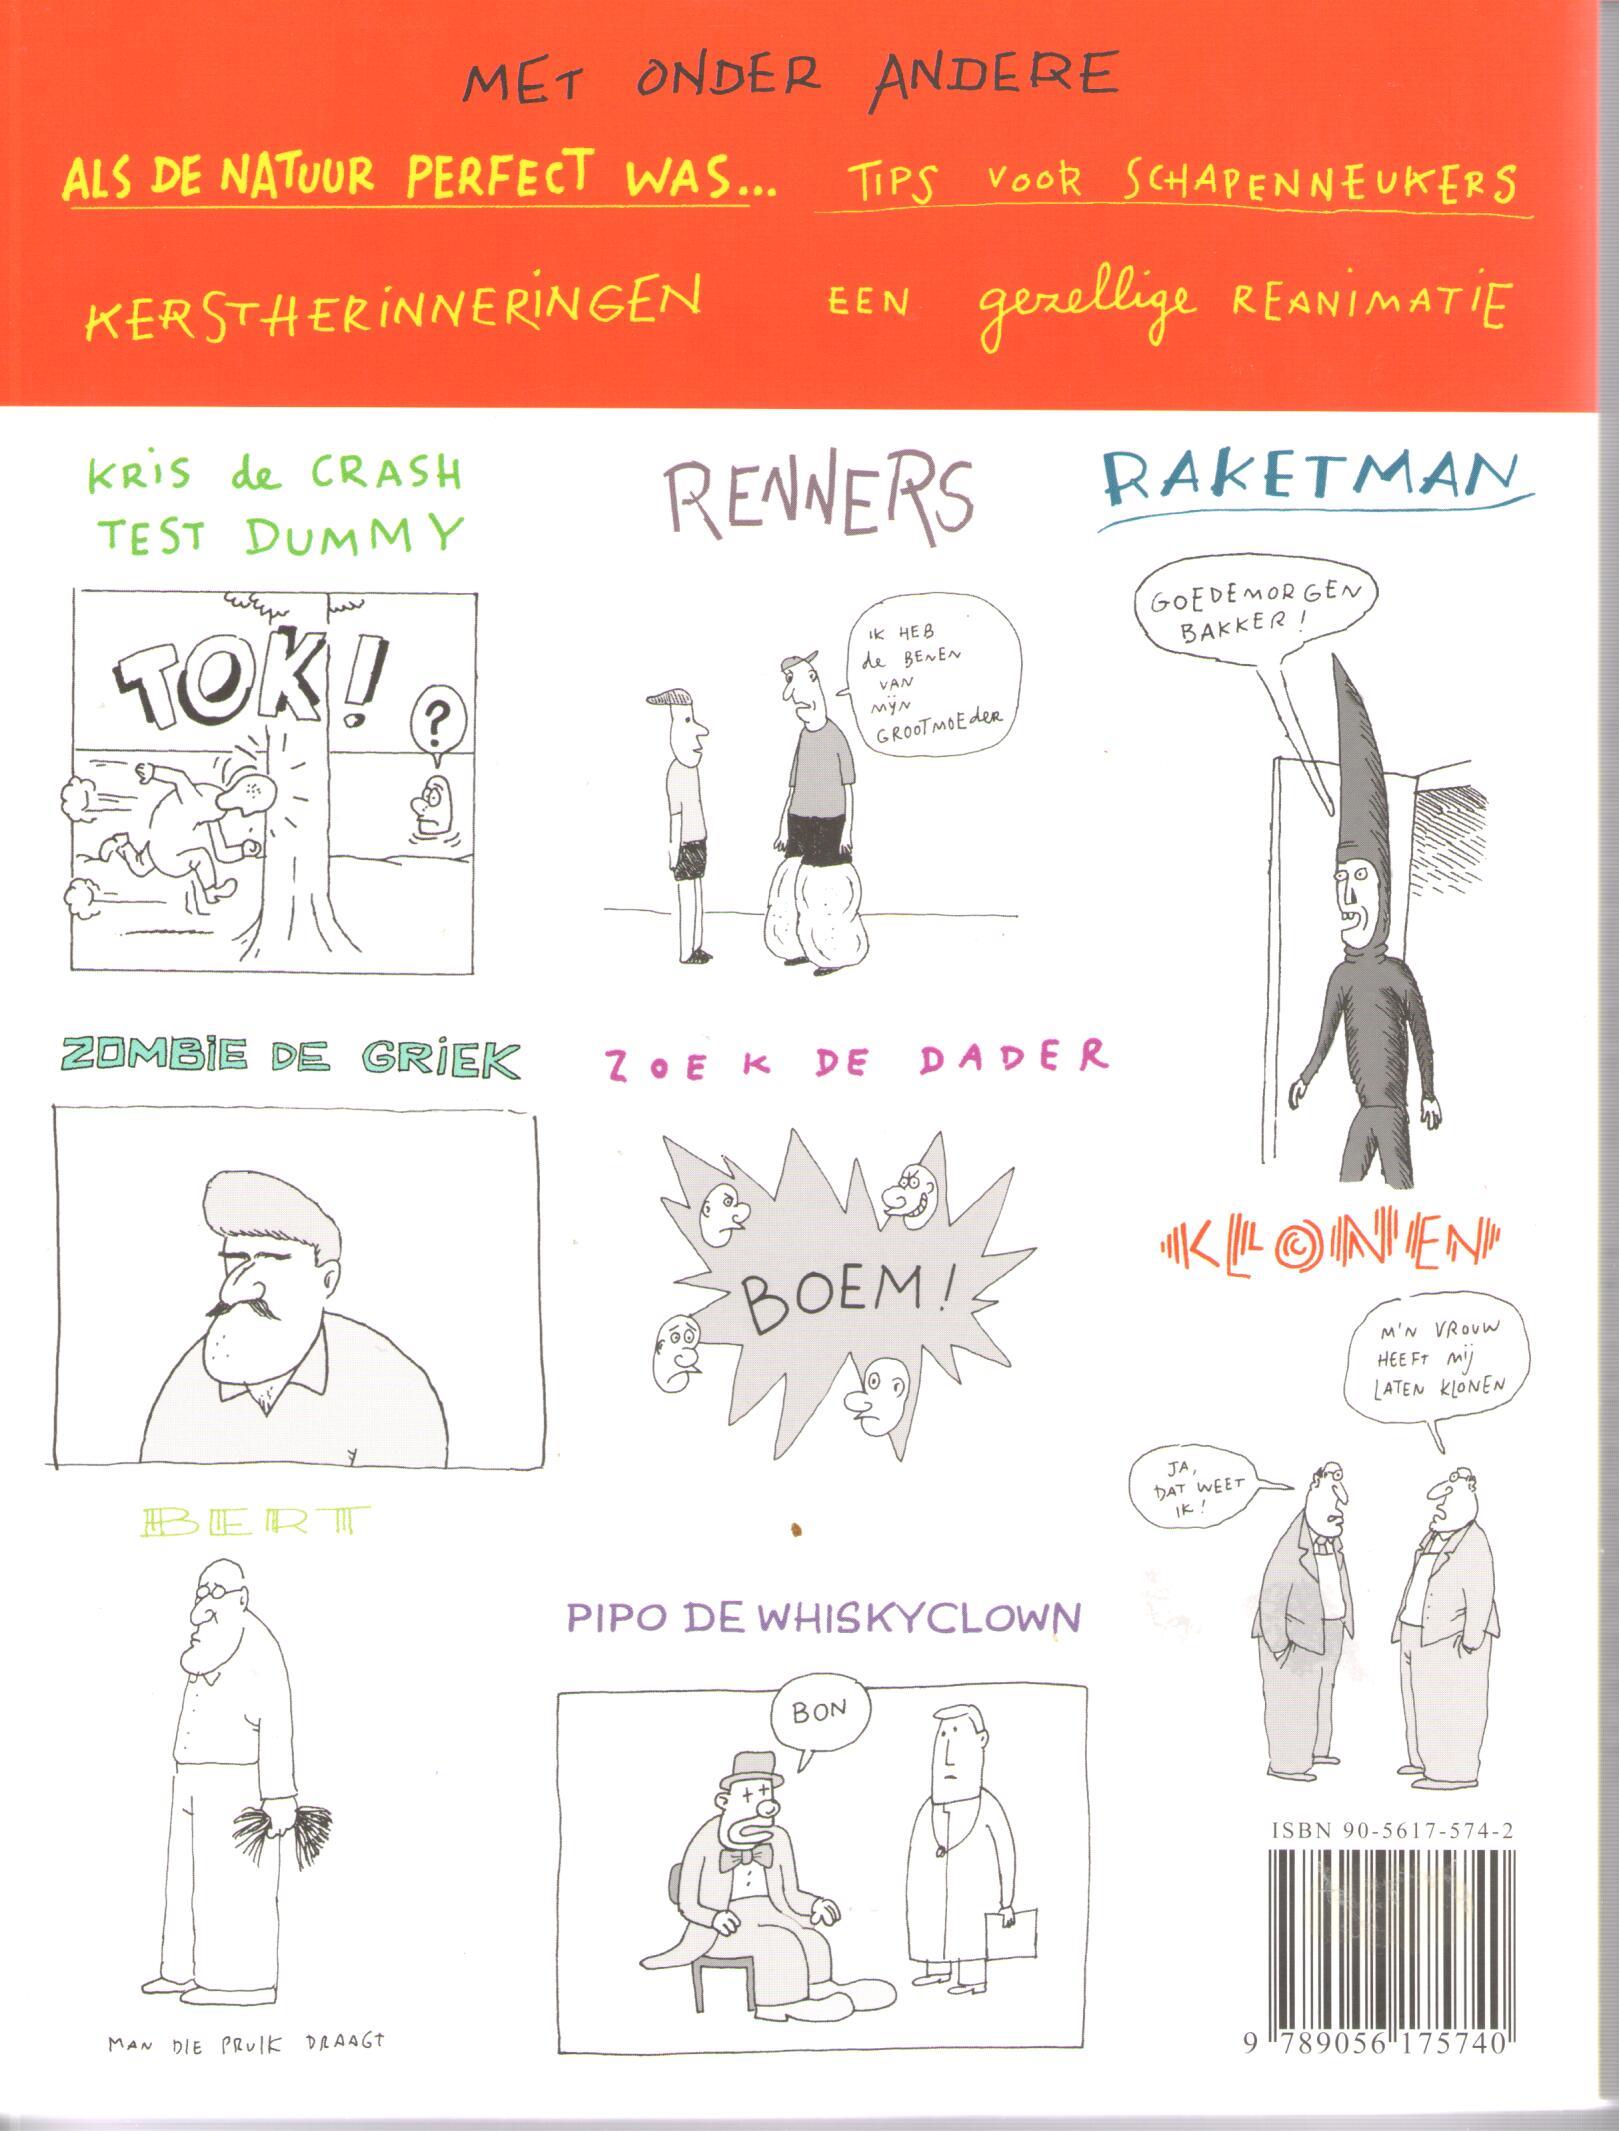 MET ONDER ANDERE
ALS DE NATUUR PERFECT WAS... TIPS VOOR SCHAPENNEUKERS
KERSTHERINNERINGEN EEN gezellige REANIMATIE
KRIS de CRASH
TEST DUMMY
TOK!
?
RENNERS
IK HEB
de BENEN
VAN
MIJN
GROOTMOEdER
RAKETMAN
GOEDEMORGEN
BAKKER!
ZOMBIE DE GRIEK
ZOEK DE DADER
BOEM!
KLONEN
M'N VROUW
HEEFT MIJ
LATEN KLONEN
JA,
DAT WEET
IK!
BERT
MAN DIE PRUIK DRAAGT
PIPO DE WHISKYCLOWN
BON
ISBN 90-5617-574-2
9 789056 175740